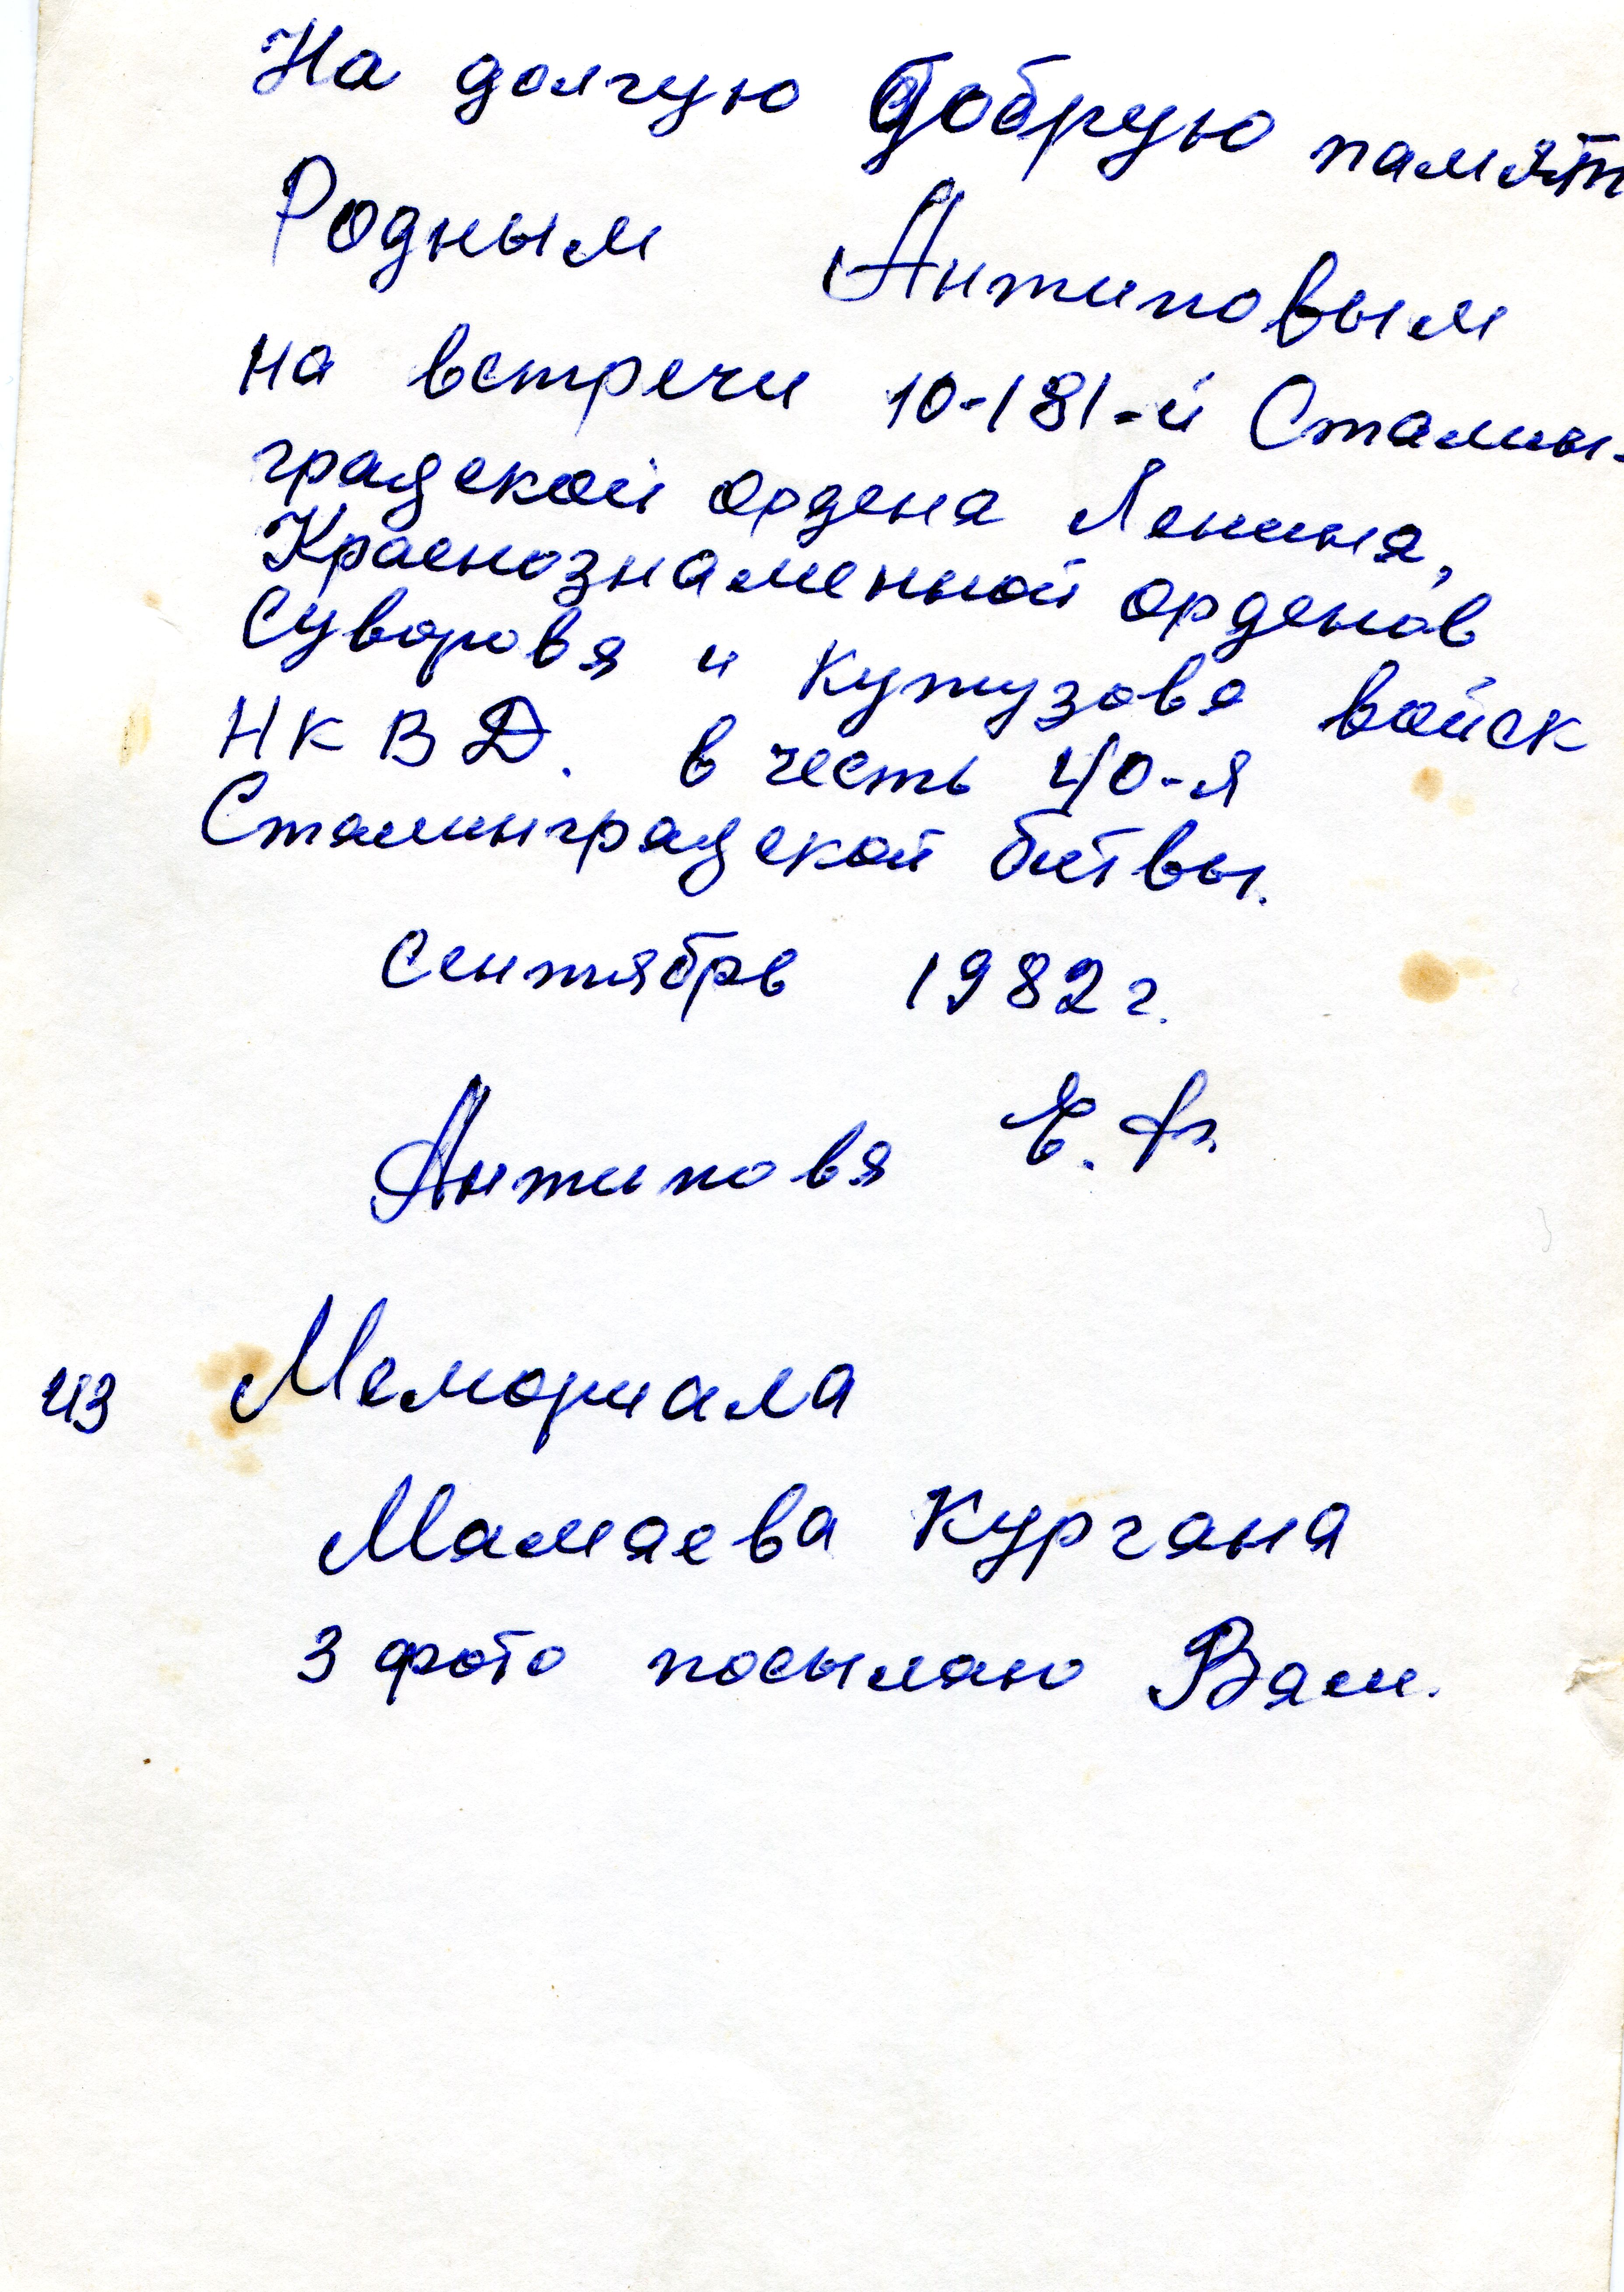 На долгую добрую памят
Родным Антиповым
на встречи 10-181-й Сталин-
градской ордена Ленина,
Краснознаменной орденов
Суворова и Кутузова войск
НКВД. в честь 40-я
Сталинградской битвы.
Сентябрь 1982 г.
Антипова Е.
из Мемориала
Мамаева Кургана
3 фото посылаю Вам.